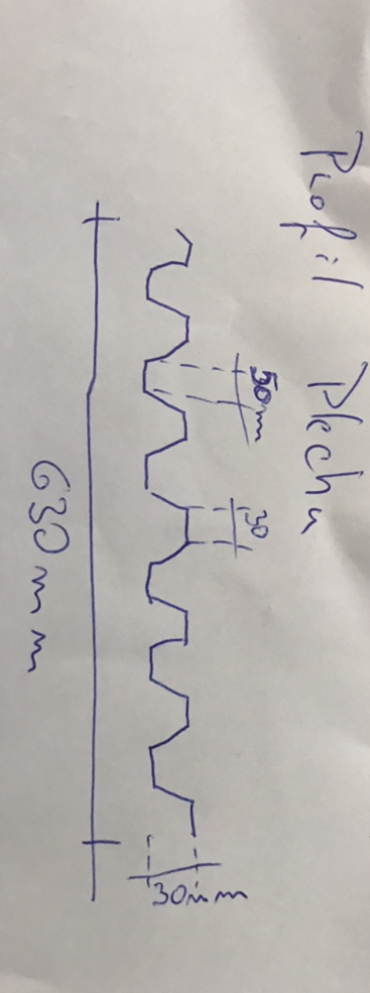 Profil Plechu
50mm
30
630mm
30mm